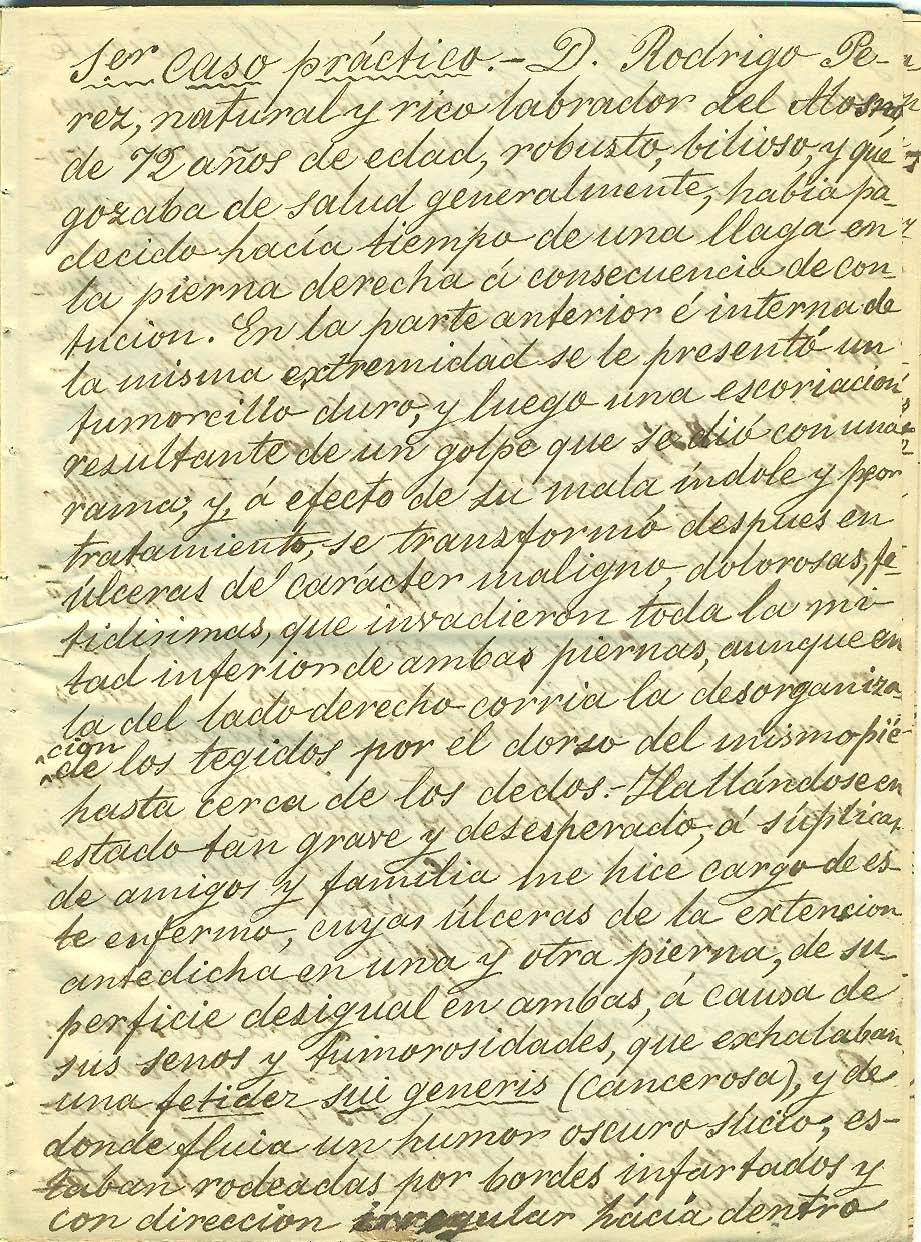 1er caso práctico.- D. Rodrigo Pe-
rez, natural y rico labrador del
de 72 años de edad, robusto, bilioso, y que
gozaba de salud generalmente, había pa-
decido hacía tiempo de una llaga en
la pierna derecha á consecuencia de con-
tucion. En la parte anterior é interna de
la misma extremidad se le presentó un
tumorcillo duro, y luego una escoriación
resultante de un golpe que se dió con una
rama; y, á efecto de su mala índole y peor
tratamiento, se transformó despues en
úlceras de carácter maligno, dolorosas, fe-
tidisimas, que invadieron toda la mi-
tad inferior de ambas piernas, aunque en
la del lado derecho corria la desorganiza-
cion
de los tegidos por el dorso del mismo pié
hasta cerca de los dedos.- Hallándose en
estado tan grave y desesperado, á súplicas
de amigos y familia me hice cargo de es-
te enfermo, cuyas úlceras de la extencion
antedicha en una y otra pierna, de su-
perficie desigual en ambas, á causa de
sus senos y tumorosidades, que exhalaban
una fetidez sui generis (cancerosa), y de
donde fluia un humor oscuro sucio; es-
taban rodeadas por bordes infartados y
con direccion irregular hácia dentro